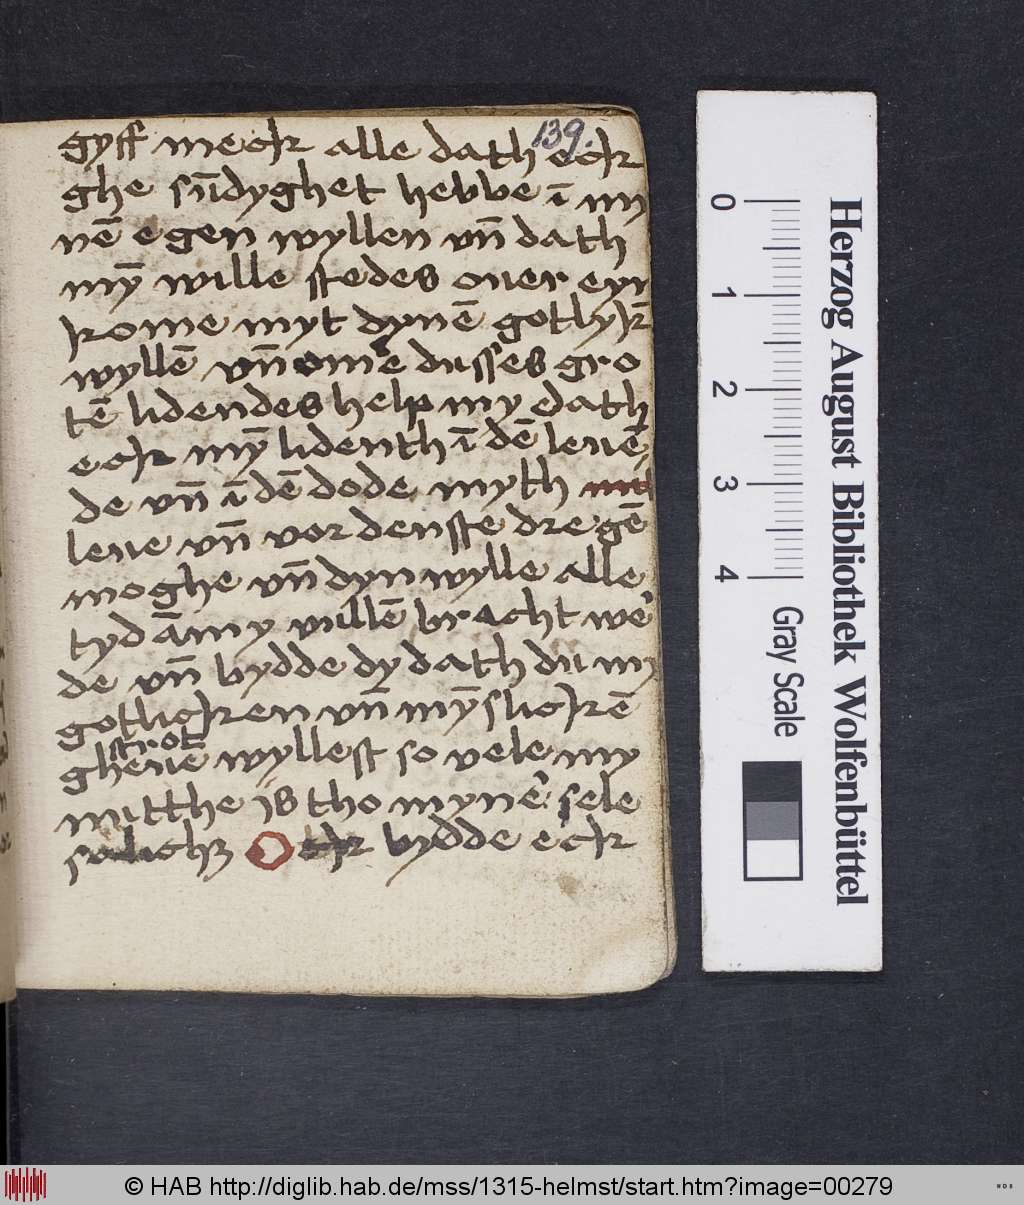 139
gyff meck alle dath eck
ghe sūdyghet hebbe ī my
nē egen wyllen vn̄ dath
mȳ wille stedes ouer eyn
kome myt dynē gothyk̄
wyllē vn̄ ome dusses gro
tē lidendes help my dath
eck mȳ lidenth ī dē leuē
de vn̄ ī dē dode myth
leue vn̄ vor denste dregē
moghe vn̄ dyn wylle alle
tyd ā my vullē bracht we
de vn̄ bydde dy dath du my
gotlicken vn̄ mȳslickē
strot
gheuē wyllest so vele my
nutthe is tho mynē sele
salich Ock bydde eck
0
1
2
3
4
Gray Scale
Herzog August Bibliothek Wolfenbüttel
© HAB http://diglib.hab.de/mss/1315-helmst/start.htm?image=00279